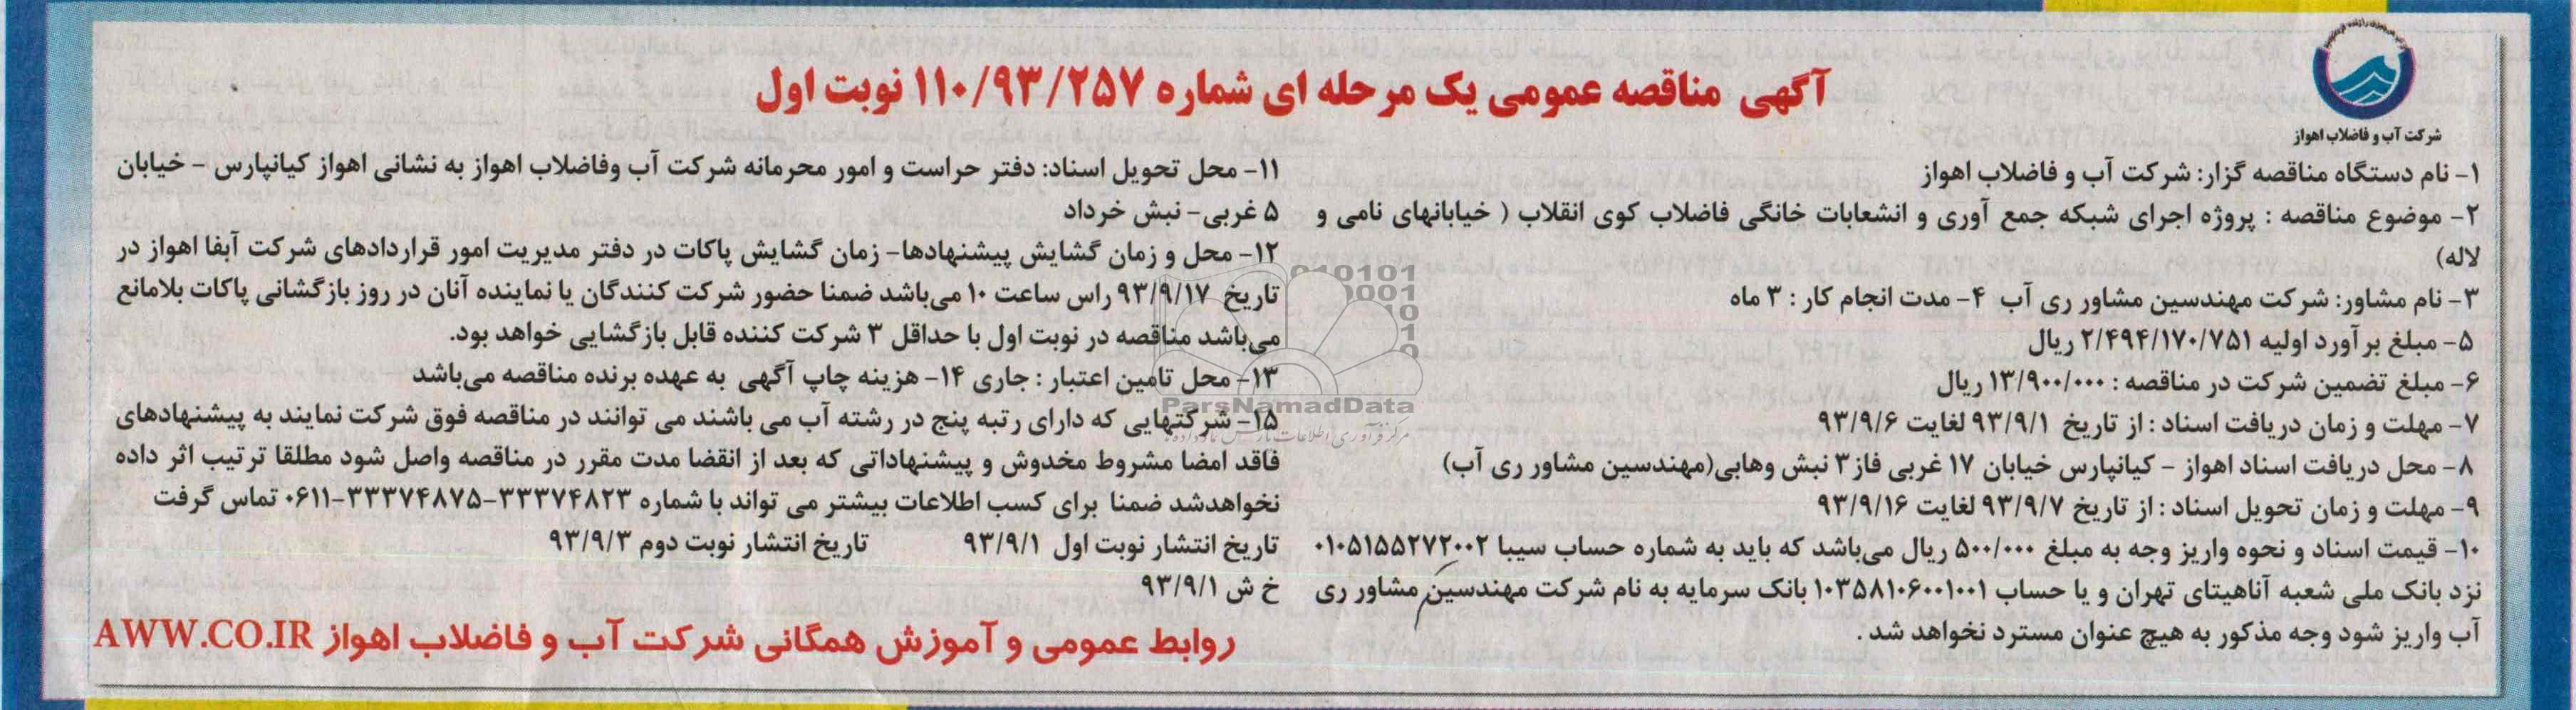 شرکت آب و فاضلاب اهواز
آگهی مناقصه عمومی یک مرحله ای شماره ۱۱۰/۹۳/۲۵۷ نوبت اول
۱- نام دستگاه مناقصه گزار: شرکت آب و فاضلاب اهواز
۲- موضوع مناقصه : پروژه اجرای شبکه جمع آوری و انشعابات خانگی فاضلاب کوی انقلاب ( خیابانهای نامی و
لاله)
۳- نام مشاور: شرکت مهندسین مشاور ری آب ۴- مدت انجام کار : ۳ ماه
۵- مبلغ برآورد اولیه ۲/۴۹۴/۱۷۰/۷۵۱ ریال
۶- مبلغ تضمین شرکت در مناقصه : ۱۳/۹۰۰/۰۰۰ ریال
۷- مهلت و زمان دریافت اسناد : از تاریخ ۹۳/۹/۱ لغایت ۹۳/۹/۶
۸- محل دریافت اسناد اهواز - کیانپارس خیابان ۱۷ غربی فاز۳ نبش وهابی(مهندسین مشاور ری آب)
۹- مهلت و زمان تحویل اسناد : از تاریخ ۹۳/۹/۷ لغایت ۹۳/۹/۱۶
۱۰- قیمت اسناد و نحوه واریز وجه به مبلغ ۵۰۰/۰۰۰ ریال می‌باشد که باید به شماره حساب سیبا ۰۱۰۵۱۵۵۲۷۲۰۰۲
نزد بانک ملی شعبه آناهیتای تهران و یا حساب ۱۰۳۵۸۱۰۶۰۰۱۰۰۱ بانک سرمایه به نام شرکت مهندسین مشاور ری
آب واریز شود وجه مذکور به هیچ عنوان مسترد نخواهد شد .
۱۱- محل تحویل اسناد: دفتر حراست و امور محرمانه شرکت آب وفاضلاب اهواز به نشانی اهواز کیانپارس - خیابان
۵ غربی- نبش خرداد
۱۲- محل و زمان گشایش پیشنهادها- زمان گشایش پاکات در دفتر مدیریت امور قراردادهای شرکت آبفا اهواز در
تاریخ ۹۳/۹/۱۷ راس ساعت ۱۰ می‌باشد ضمنا حضور شرکت کنندگان یا نماینده آنان در روز بازگشائی پاکات بلامانع
می‌باشد مناقصه در نوبت اول با حداقل ۳ شرکت کننده قابل بازگشایی خواهد بود.
۱۳- محل تامین اعتبار : جاری ۱۴- هزینه چاپ آگهی به عهده برنده مناقصه می‌باشد
۱۵- شرکتهایی که دارای رتبه پنج در رشته آب می باشند می توانند در مناقصه فوق شرکت نمایند به پیشنهادهای
فاقد امضا مشروط مخدوش و پیشنهاداتی که بعد از انقضا مدت مقرر در مناقصه واصل شود مطلقا ترتیب اثر داده
نخواهدشد ضمنا برای کسب اطلاعات بیشتر می تواند با شماره ۳۳۳۷۴۸۲۳-۳۳۳۷۴۸۷۵-۰۶۱۱ تماس گرفت
تاریخ انتشار نوبت اول ۹۳/۹/۱ تاریخ انتشار نوبت دوم ۹۳/۹/۳
خ ش ۹۳/۹/۱
روابط عمومی و آموزش همگانی شرکت آب و فاضلاب اهواز AWW.CO.IR
ParsNamadData